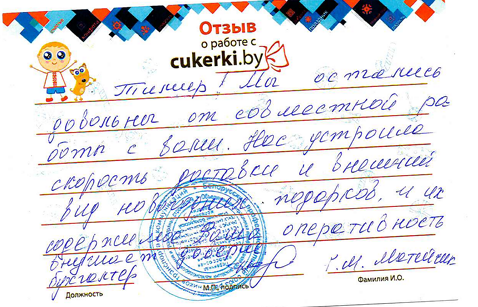 Отзыв
о работе с
cukerki.by
Тимур! Мы остались
довольны от совместной ра-
боты с вами. Нас устроила
скорость доставки и внешний
вид новогодних подарков, и их
содержимое. Ваша оперативность
внушает доверие
бухгалтер
Должность
М.П., подпись
Фамилия И.О.